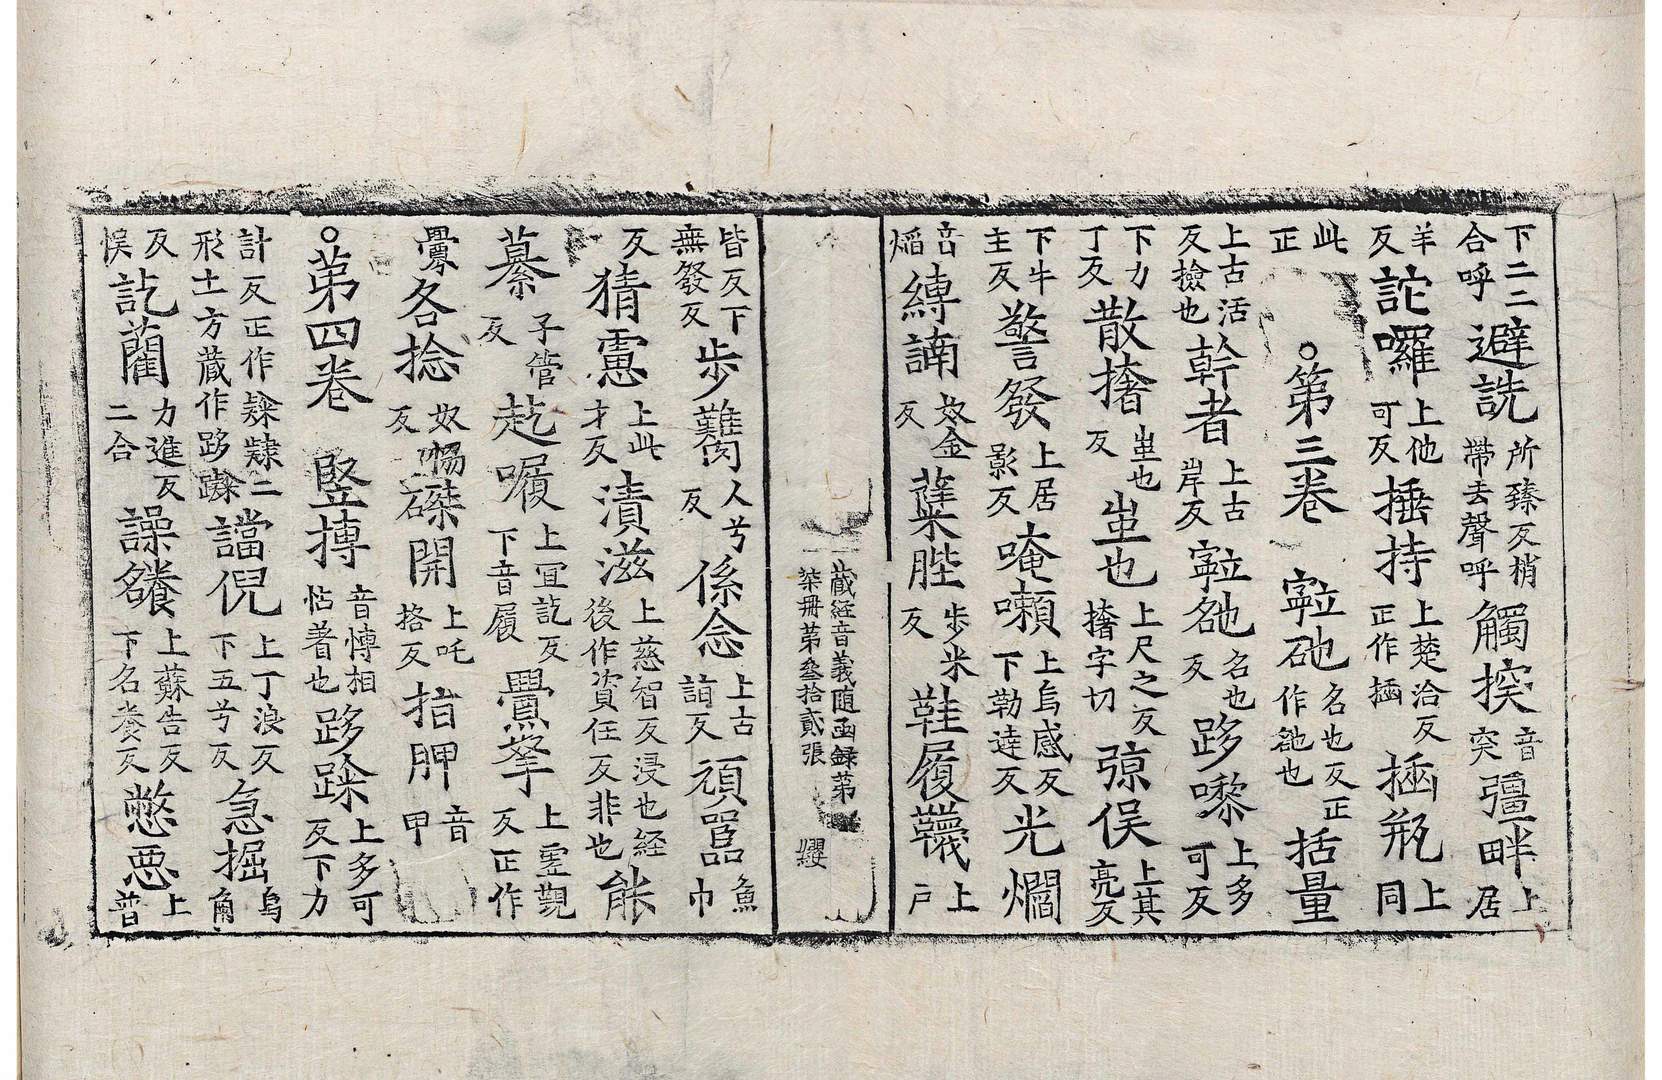 下二二合呼避詵所臻反梢帶去聲呼觸揬音突彊畔上居
羊反詑囉上他可反捶持上楚洽反正作插插瓶上同
此正
○第三卷 𡨴𥐻名也反正作𨚗也括量
上古活反撿也幹者上古岸反𡨴𨚗名也反跢嚟上多可反
下力丁反散撦㞷也反㞷也上尺之反撦字切弶俣上其亮反
下牛主反警發上居影反唵嚩上烏感反下勒達反光爛
音焰縛諵奴金反蘖䏶步米反鞋履韈上戶
一藏經音義隨函録第 㭍冊第叄拾貳張 纓
皆反下無發反步難関人兮反係念上古詣反頑嚚魚巾
反猜慮上此才反漬滋上慈智反浸也経後作資任反非也能
綦子管反趂囑上𡨋訖反下音履疊㧬上𤴓觀反正作
爨各捻奴惕反磔開上吒挌反指胛音甲
○第四卷 竪摶音慱相怗著也跢跺上多可反下力
計反正作𨽻𨽻二形土方藏作跢𨄔讜倪上丁浪反下五兮反急掘烏角
反悮訖藺力進反二合譟𩜇上蘇告反下名養反憋惡上普